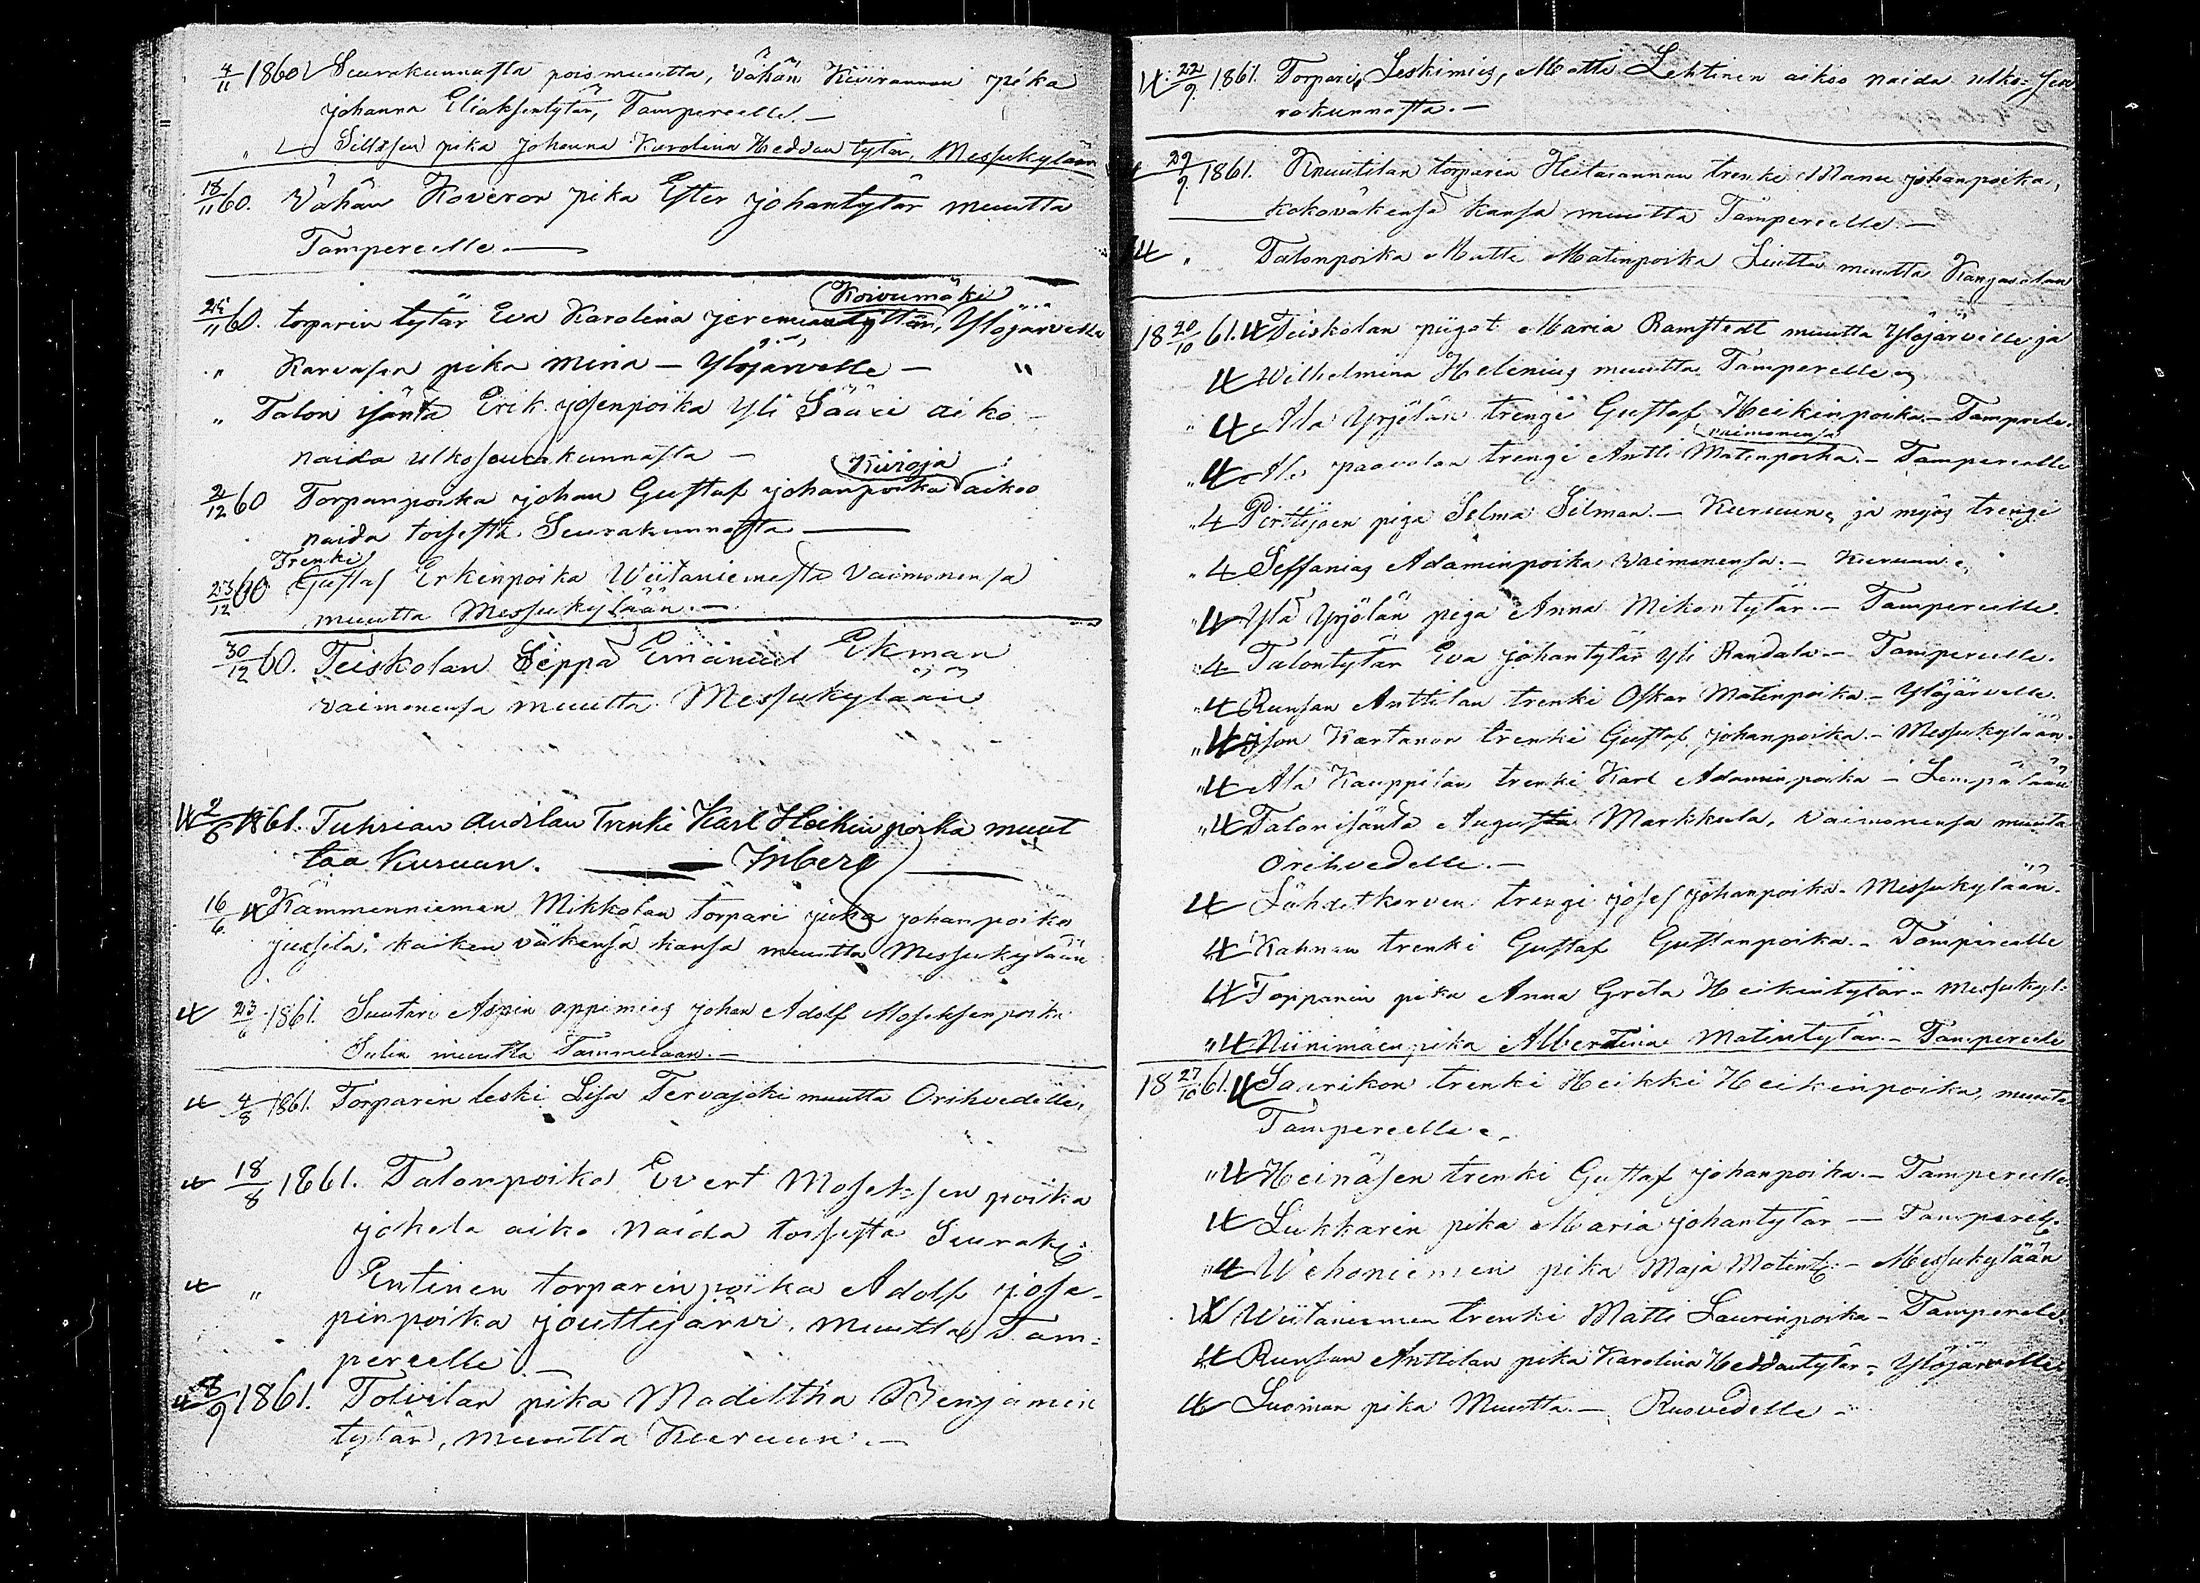 4/11 1860 Seurakunnasta pois muutta, Vähän Kivirannan pika
Johanna Eliaksentytär, Tampereelle. —
" Sillosen pika Johanna Karolina Heddan tytär, Messukylään
18/11 60. Vähän Koveron pika Ester Johantytär muutta
Tampereelle. —
25/11 60. torparin tytär Eva Karolina Jeremiantytär, (Koivumäki) Ylöjärvelle
" Karvasen pika Mina — Ylöjärvelle — "
" Talon isäntä Erik Josenpoika Yli Sääri aiko
naida ulkoseurakunnasta —
2/12 60 Torparipoika Johan Gustaf Johanpoika (Kivioja) aikoo
naida toisesta Seurakunnasta —
Trenki
23/12 60 Gustaf Erkinpoika Wiitaniemestä Vaimonensa
muutta Messukylään. —
30/12 60. Teiskolan Seppä Emanuel Ekman
vaimonensa muutta Messukylään
4 2/6 1861. Tuhrian Andilan Trenki Karl Heikin poika muut
taa Kuruun. — Inberg —
16/6 4 Kämmenniemen Mikkolan torpari Juka Johanpoika
Jussila, kaiken väkensä kansa muutta Messukylään
4 23/6 1861. Suutari Aspin oppimies Johan Adolf Moseksenpoika
Sulin muutta Tammelaan. —
4 4/8 1861. Torparin leski Lisa Tervajoki muutta Orihvedelle,
4 18/8 1861. Talonpoika Evert Moseksen poika
Jokela aiko naida toisesta Seurak:
4 " Entinen torparin poika Adolf Jose-
pinpoika Jouttijärvi, muutta Tam-
pereelle —
4 8/9 1861. Tolvilan pika Madiltha Benjamin
tytär, muutta Kuruun. —
4 22/9 1861. Torpari, Leskimies, Matti Lehtinen aikoo naida ulko-Seu
rakunnasta. —
4 29/9 1861. Knuutilan torparin Heitarannan trenki Manu Johanpoika,
kokoväkensä kansa muutta Tampereelle —
4 " Talonpoika Matti Matinpoika Liutta muutta Kangasalan
18 20/10 61. 4 Teiskolan piigot Maria Ramstedt muutta Ylöjärvelle ja
4 Wilhelmina Helenius muutta Tamperelle,
" 4 Ala Yrjölän trengi Gustaf Heikinpoika. — Tamperele.
" 4 Ala paavolan trengi Antti Matinpoika (vaimonensa). — Tampereelle
" 4 Pirttijoen piga Selma Silman. — Kuruun, ja myös trengi
" 4 Seffanias Adaminpoika Vaimonensa. — Kuruun.
" 4 Ylä Yrjölän piga Anna Mikontytär. — Tampereelle.
" 4 Talontytär Eva Johantytär Yli Randala. — Tampereelle.
" 4 Runsan Anttilan trenki Oskar Matinpoika. — Ylöjärvelle.
" 4 Ison Kartanon trenki Gustaf Johanpoika. — Messukylään.
" 4 Ala Kauppilan trenki Karl Adamin poika — Lempälään
" 4 Talon isäntä August Markkula, Vaimonensa muuta
Orihvedelle. —
4 Lähdetkorven trengi Josef Johanpoika. Messukylään.
4 Kahnan trenki Gustaf Gustanpoika. — Tampirealle
4 Topparin pika Anna Greta Heikintytär — Messukyl:
" 4 Niinimäen pika Albertina Matintytär. — Tampereele
18 27/10 61. 4 Saarikon trenki Heikki Heikinpoika, muuta
Tampereelle.
" 4 Heinäsen trenki Gustaf Johanpoika. — Tampereelle
4 Lukkarin pika Maria Johantytär — Tamperell.
" 4 Wehoniemen pika Maja Matint: — Messukylään
4 Wiitaniemen trenki Matti Laurinpoika — Tamperele.
4 Runsan Anttilan pika Karolina Heddantytär — Ylöjärvelle
4 Luoman pika Muutta. — Ruovedelle —